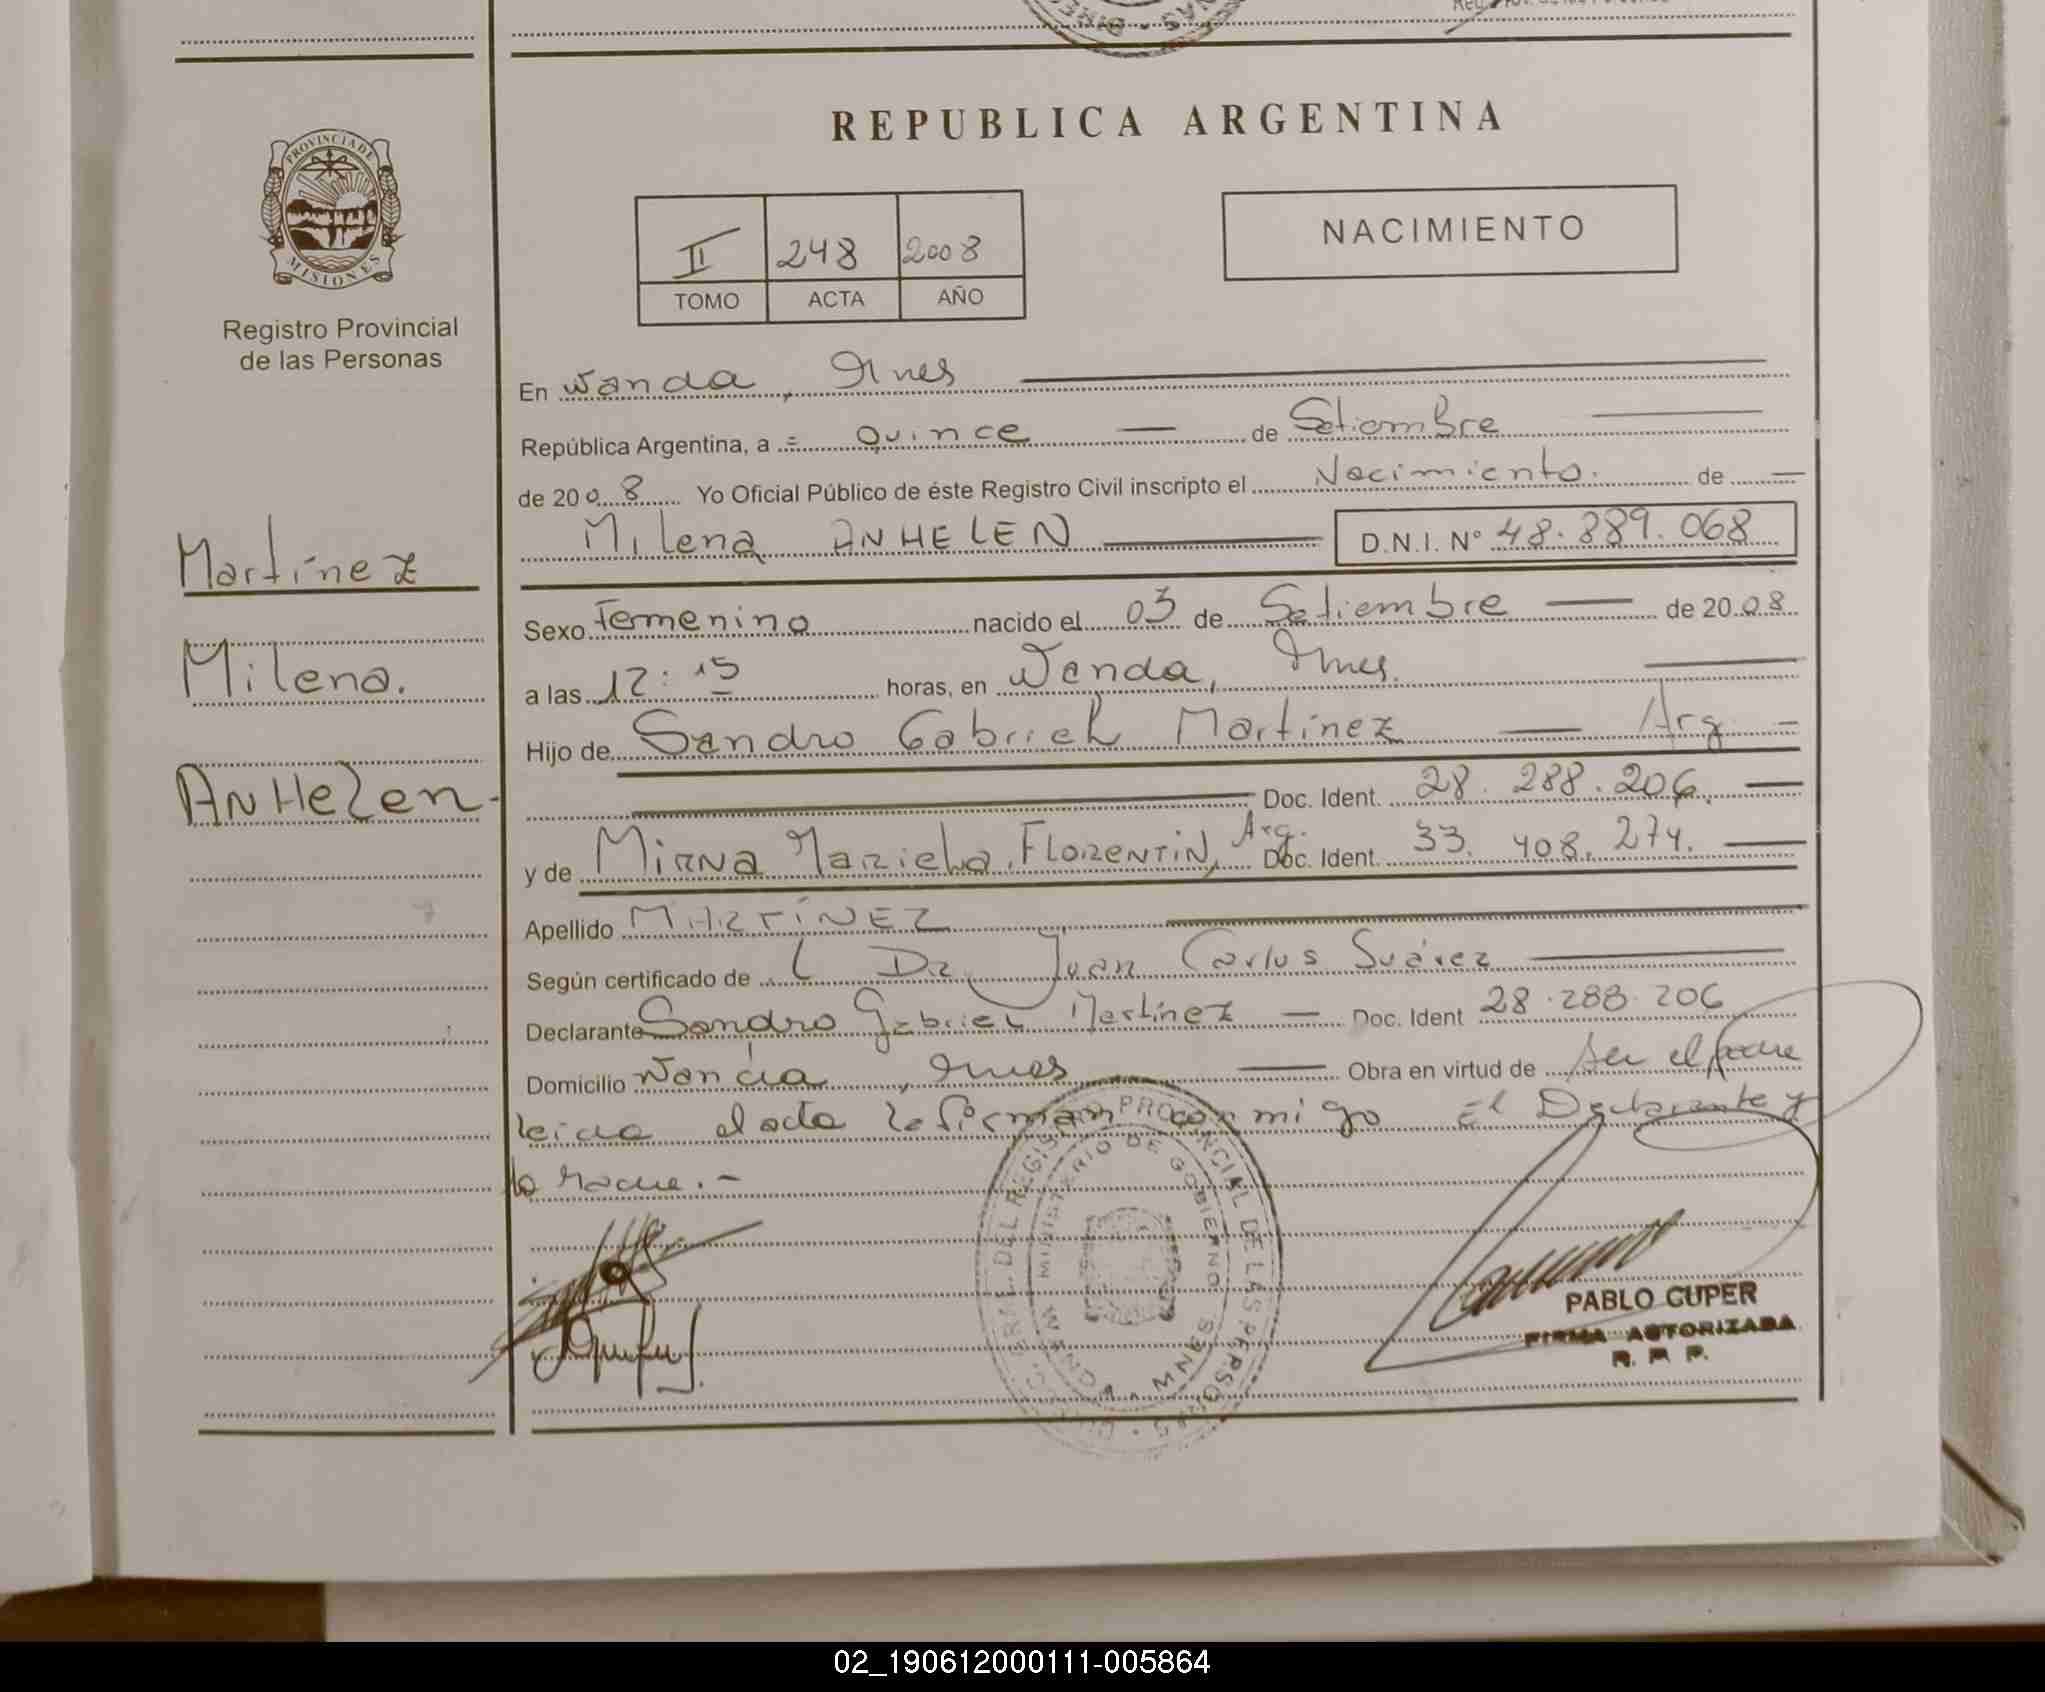 REPUBLICA ARGENTINA
PROVINCIA DE
MISIONES
Registro Provincial
de las Personas
II 248 2008
TOMO ACTA AÑO
NACIMIENTO
En Wanda, Mnes
República Argentina, a = Quince de Setiembre
de 2008 Yo Oficial Público de éste Registro Civil inscripto el Nacimiento. de
Milena ANHELEN D.N.I. Nº 48.889.068
Martínez
Milena.
ANHelen-
Sexo Femenino nacido el 03 de Setiembre de 2008
a las 12:15 horas, en Wanda, Mnes.
Hijo de Sandro Gabriel Martínez Arg
Doc. Ident. 28.288.206.
y de Mirna Mariela FLORENTIN, Arg. Doc. Ident. 33.408.274.
Apellido MARTÍNEZ
Según certificado de L Dr Juan Carlos Suárez
Declarante Sandro Gabriel Martínez Doc. Ident 28.288.206
Domicilio Wanda, Mnes Obra en virtud de Ser el padre
leida el acta la firman conmigo El Declarante y
la Madre.-
PABLO CUPER
FIRMA AUTORIZADA
R. P. P.
02_190612000111-005864